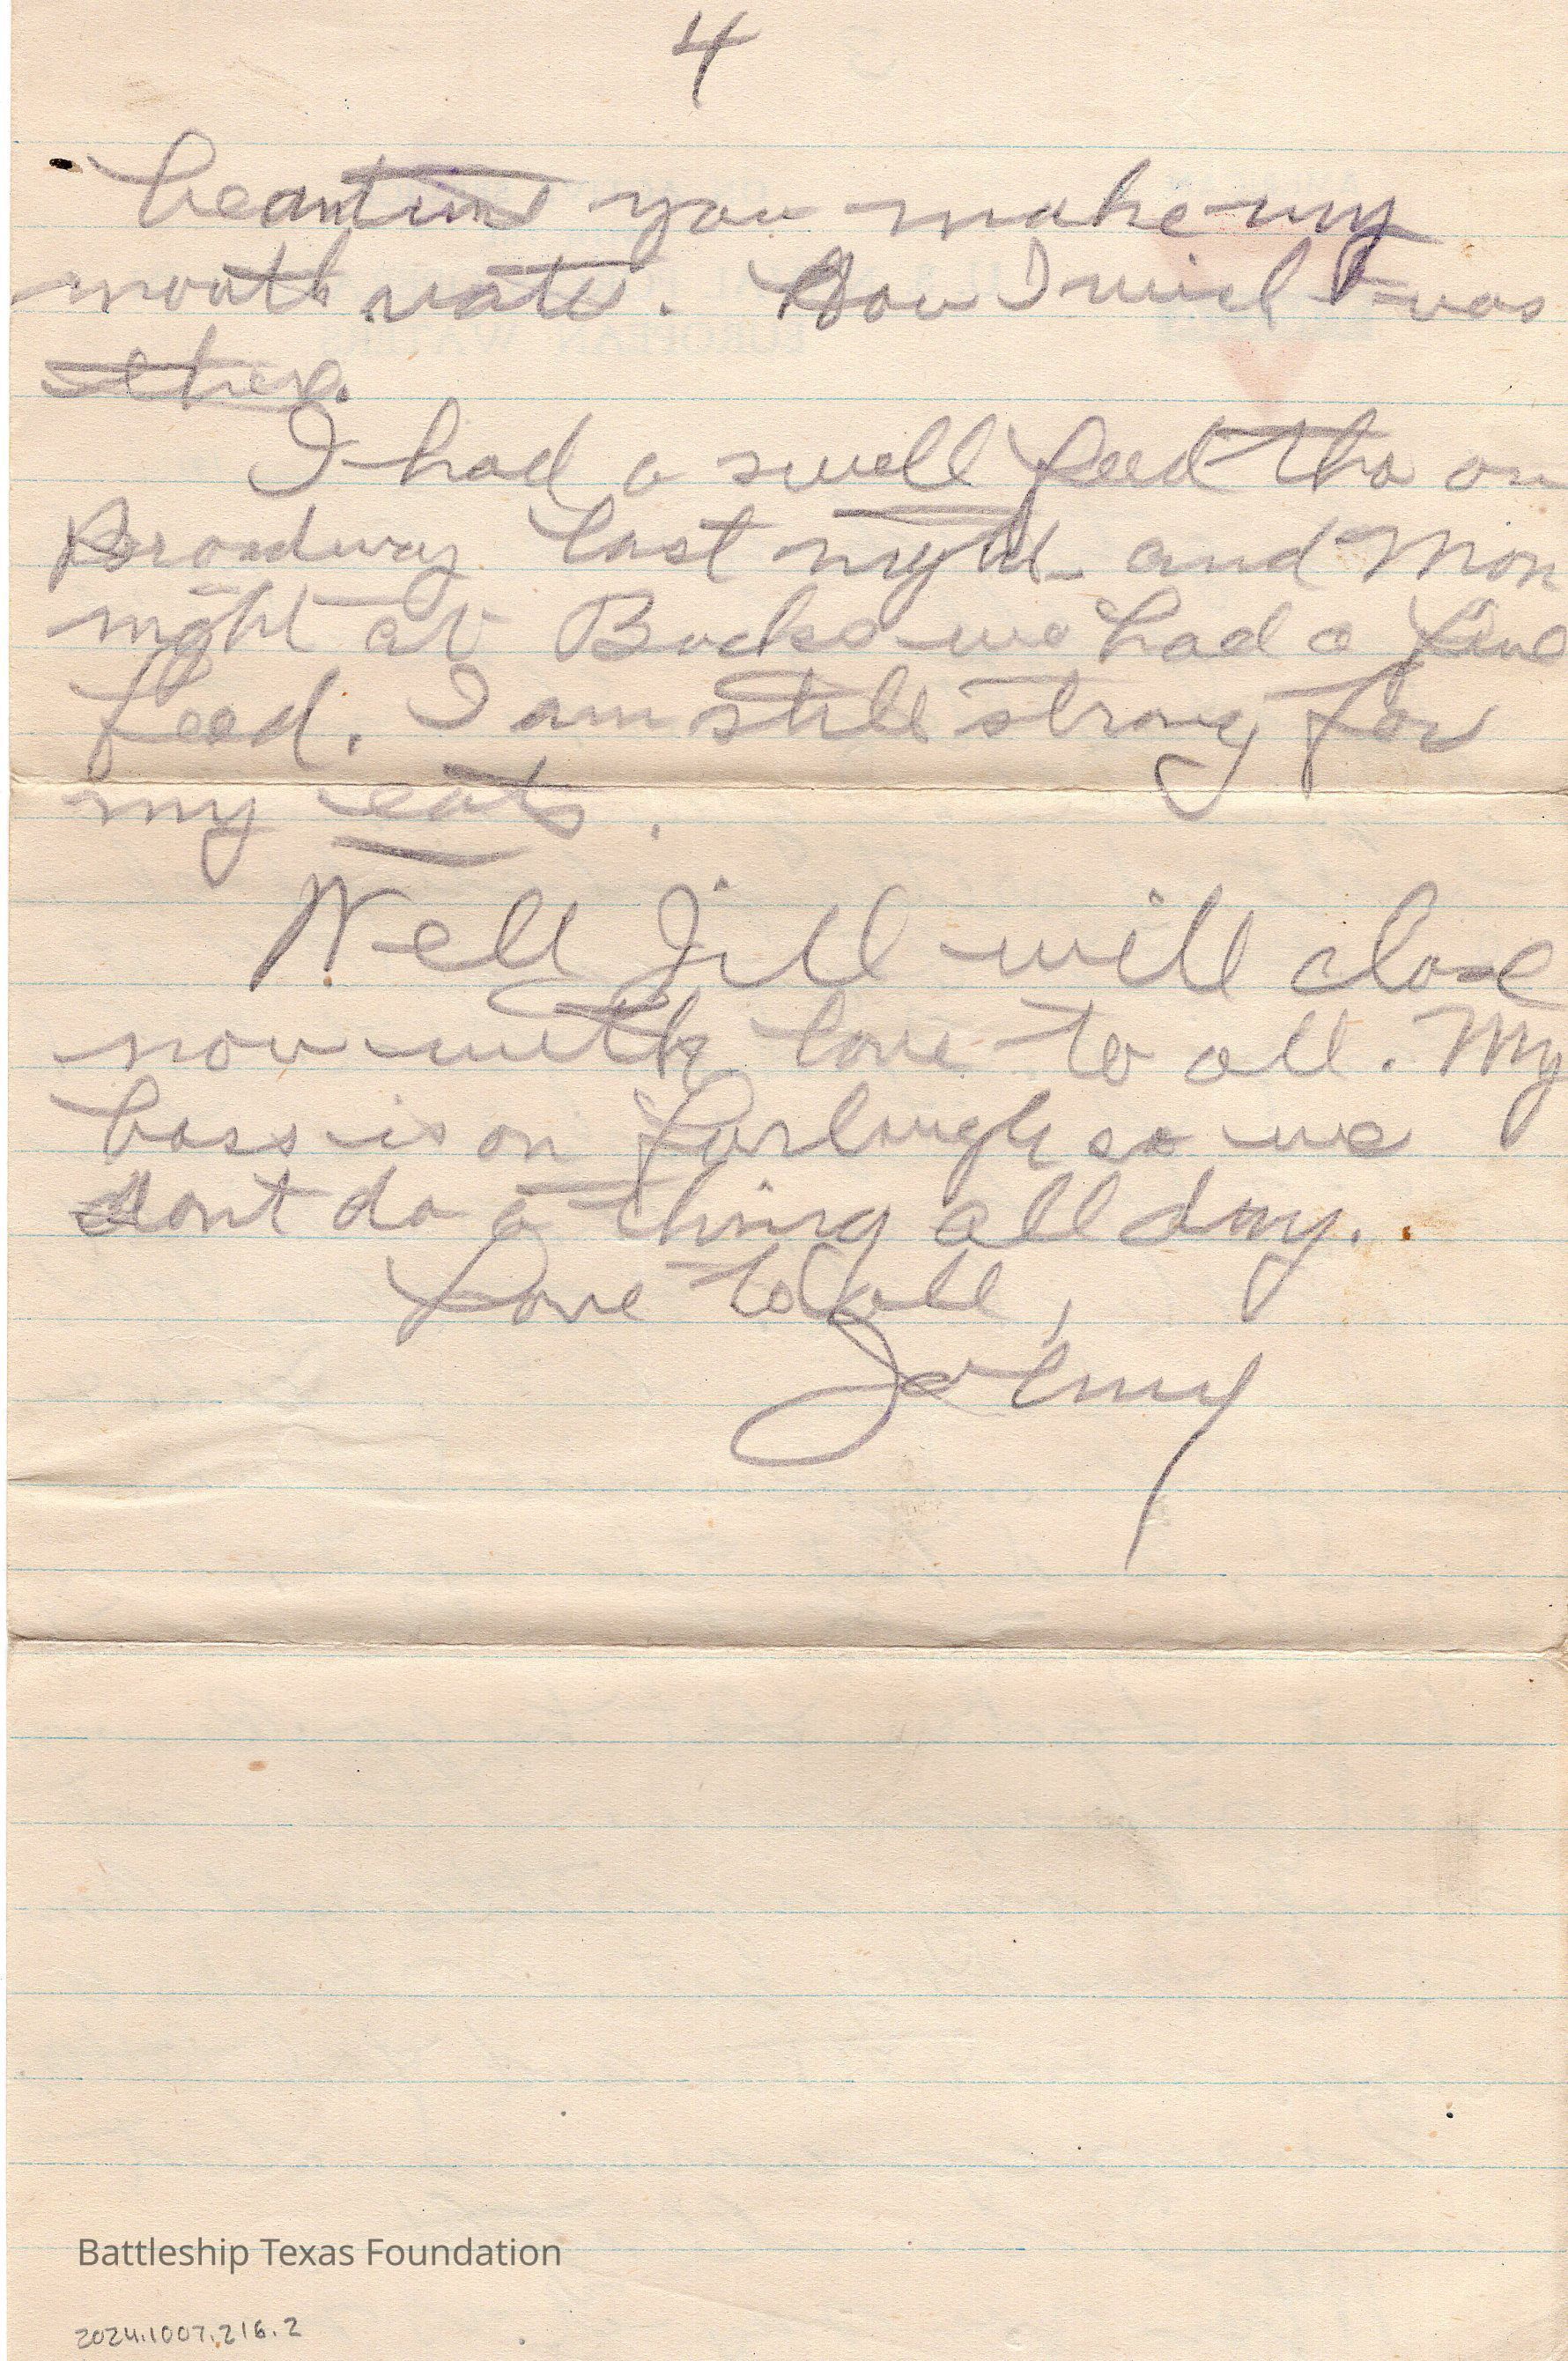 4
you make my
mouth water. How I wish I was
there.
I had a swell feed tho on
Broadway last night and Mon
night at Bucks we had a fine
feed. I am still strong for
my eats.
Well Jill will close
now with love to all. My
boss is on furlough so we
dont do a thing all day.
Love to all,
Johnny
Battleship Texas Foundation
2024.1007.216.2